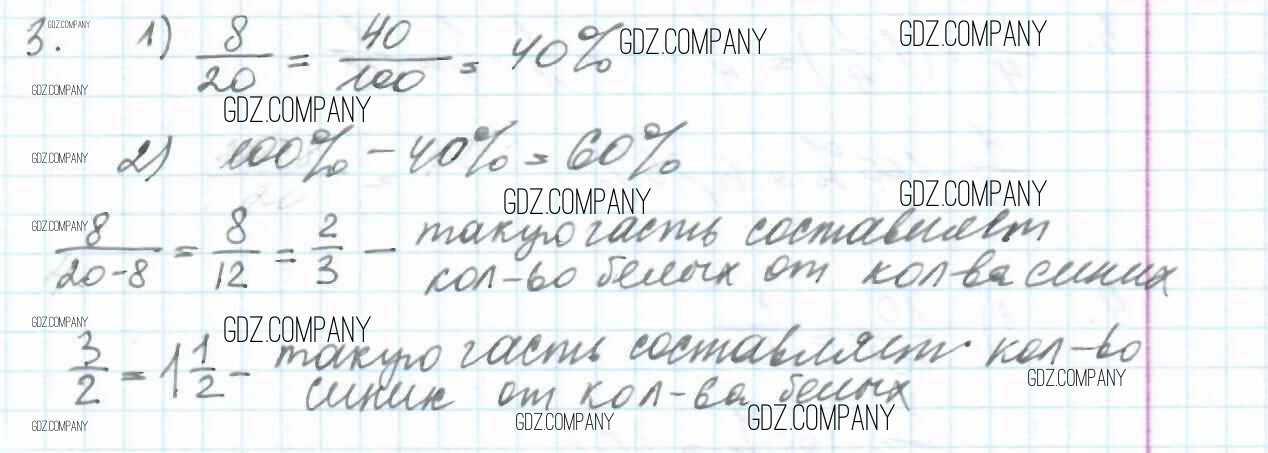 GDZ.COMPANY
3. 1) 8/20 = 40/100 = 40% GDZ.COMPANY GDZ.COMPANY
GDZ.COMPANY
GDZ.COMPANY
GDZ.COMPANY 2) 100% - 40% = 60%
GDZ.COMPANY GDZ.COMPANY
GDZ.COMPANY
8/20-8 = 8/12 = 2/3 - такую часть составляет
кол-во белых от кол-ва синих
GDZ.COMPANY GDZ.COMPANY
3/2 = 1 1/2 - такую часть составляет кол-во
GDZ.COMPANY
синих от кол-ва белых
GDZ.COMPANY GDZ.COMPANY GDZ.COMPANY